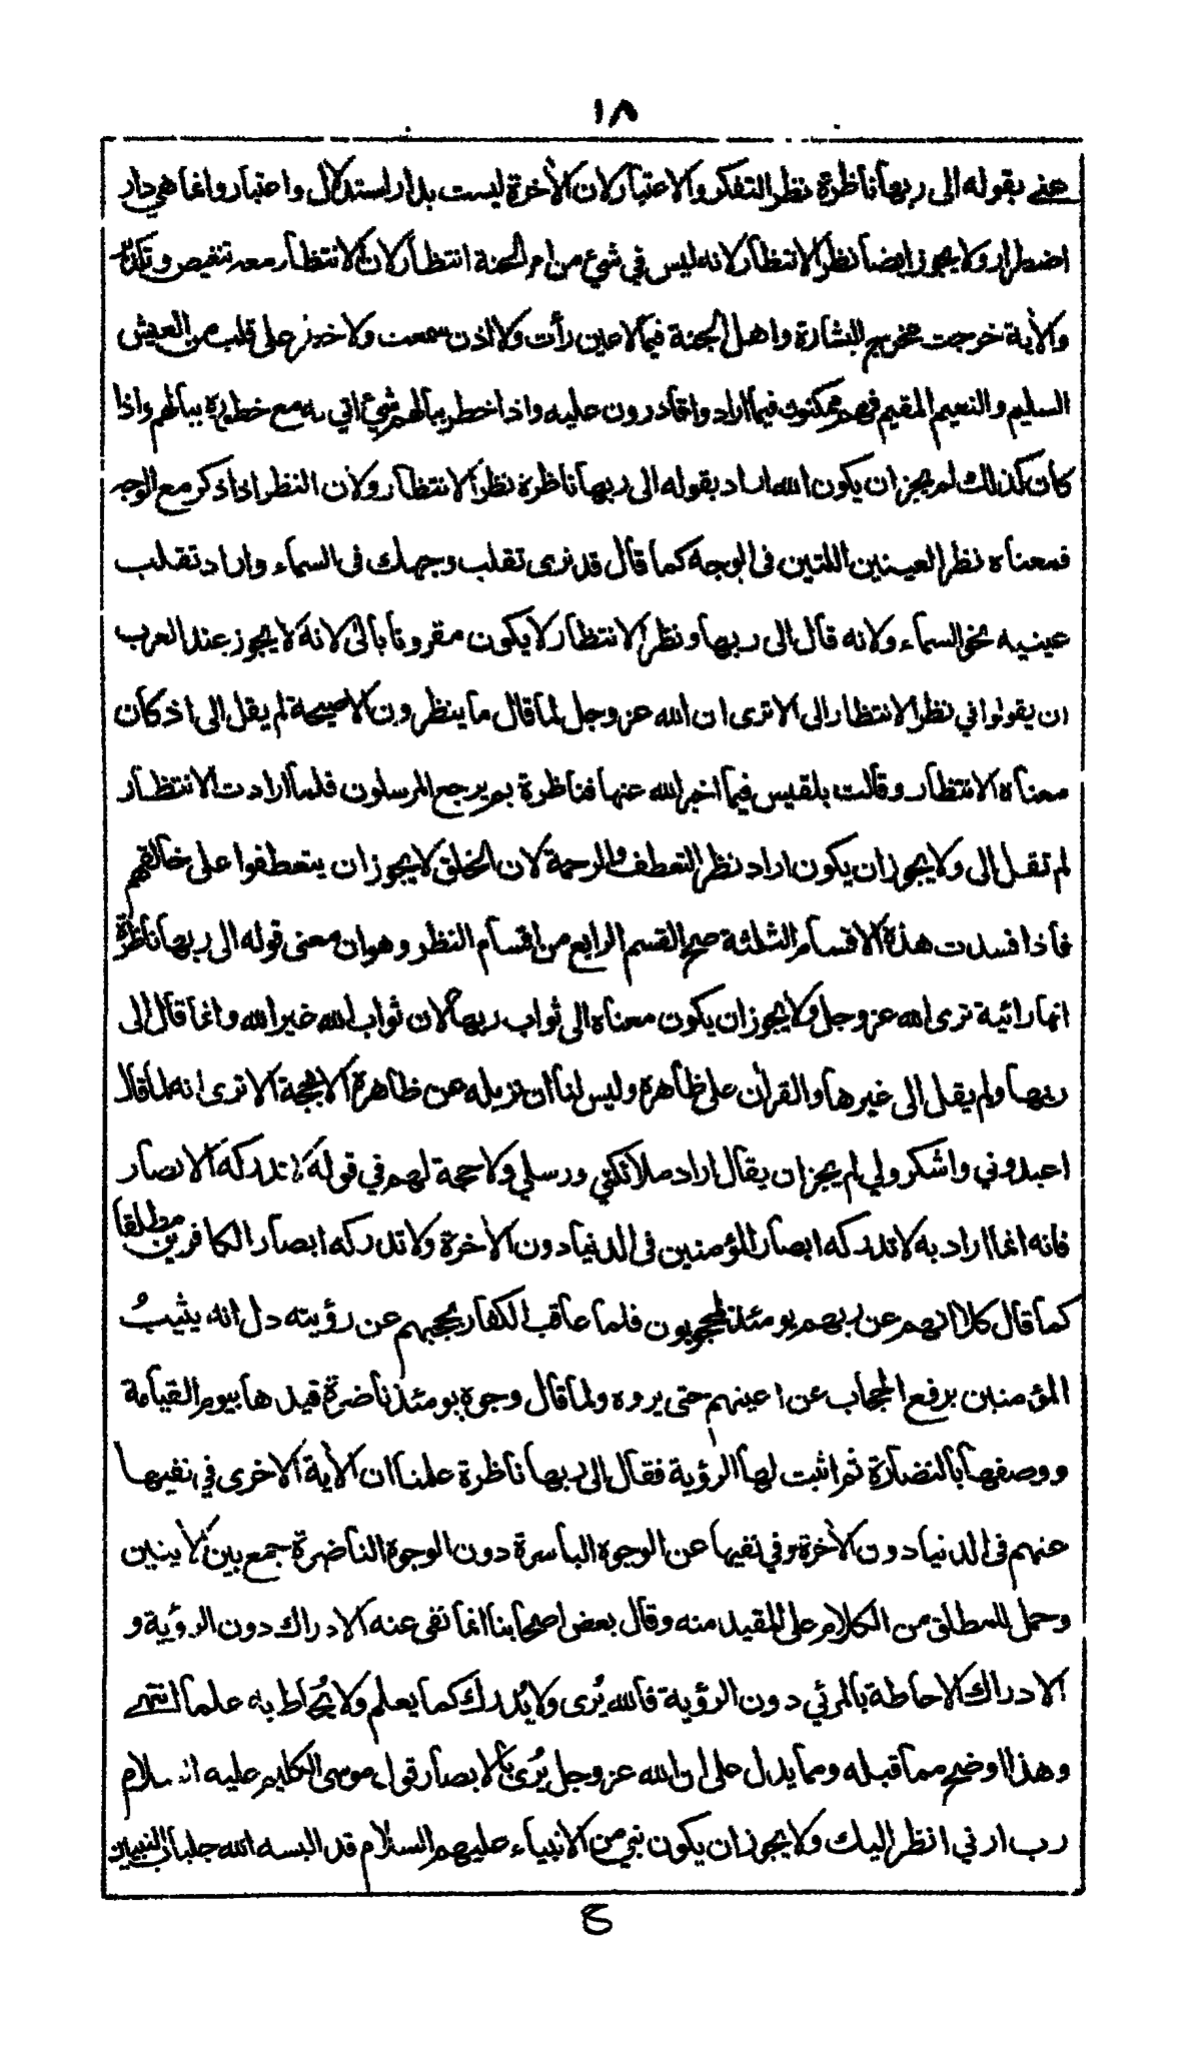 ١٨
عنى بقوله الى ربها ناظرة نظر التفكر والاعتبار لان الأخرة ليست بدار استدلال واعتبار وانما هي دار
اضطرار ولا يجوز ايضا نظر الانتظار لانه ليس في شئ من امر الجنة انتظار لان الانتظار معه تنغيص وتكدير
والأية خرجت مخرج البشارة واهل الجنة فيما لا عين رأت ولا اذن سمعت ولا خطر على قلب من العيش
السليم والنعيم المقيم فهم ممكنون فيما ارادوا قادرون عليه واذا خطر ببالهم شئ اتي به مع خطوره ببالهم واذا
كان كذلك لم يجز ان يكون الله اراد بقوله الى ربها ناظرة نظر الانتظار ولان النظر اذا ذكر مع الوجه
فمعناه نظر العينين اللتين فى الوجه كما قال قد نرى تقلب وجهك فى السماء واراد تقلب
عينيه نحو السماء ولانه قال الى ربها ونظر الانتظار لا يكون مقرونا بالى لانه لا يجوز عند العرب
ان يقولوا في نظر الانتظار الى الا ترى ان الله عز وجل لما قال ما ينظرون الا صيحة لم يقل الى اذ كان
معناه الانتظار وقالت بلقيس فيما اخبر الله عنها فناظرة بم يرجع المرسلون فلما ارادت الانتظار
لم تقل الى ولا يجوز ان يكون اراد نظر التعطف والرحمة لان الخلق لا يجوز ان يتعطفوا على خالقهم
فاذا فسدت هذه الاقسام الثلثة صح القسم الرابع من اقسام النظر وهو ان معنى قوله الى ربها ناظرة
انها رائية ترى الله عز وجل ولا يجوز ان يكون معناه الى ثواب ربها لان ثواب الله غير الله وانما قال الى
ربها ولم يقل الى غيرها والقرأن على ظاهره وليس لنا ان نزيله عن ظاهره الا بحجة الا ترى انه لما قال
اعبدوني واشكرولي لم يجز ان يقال اراد ملائكتي ورسلي ولا حجة لهم في قوله لا تدركه الابصار
فانه انما اراد به لا تدركه ابصار المؤمنين فى الدنيا دون الأخرة ولا تدركه ابصار الكافرين مطلقا
كما قال كلا انهم عن ربهم يومئذ لمحجوبون فلما عاقب الكفار بحجبهم عن رؤيته دل انه يثيبُ
المؤمنين برفع الحجاب عن اعينهم حتى يروه ولما قال وجوه يومئذ ناضرة قيدها بيوم القيامة
ووصفها بالنضارة ثم اثبت لها الرؤية فقال الى ربها ناظرة علمنا ان الأية الاخرى في نفيها
عنهم فى الدنيا دون الأخرة وفي نفيها عن الوجوه الباسرة دون الوجوه الناضرة جمع بين الأيتين
وحمل للمطلق من الكلام على المقيد منه وقال بعض اصحابنا انما نفى عنه الادراك دون الرؤية و
الادراك الاحاطة بالمرئي دون الرؤية فالله يُرى ولا يُدرك كما يعلم ولا يُحاط به علما انتهى
وهذا اوضح مما قبله ومما يدل على ان الله عز وجل يُرى بالابصار قول موسى الكليم عليه السلام
رب ارني انظر اليك ولا يجوز ان يكون نبي من الانبياء عليهم السلام قد البسه الله جلباب النبيين
ع